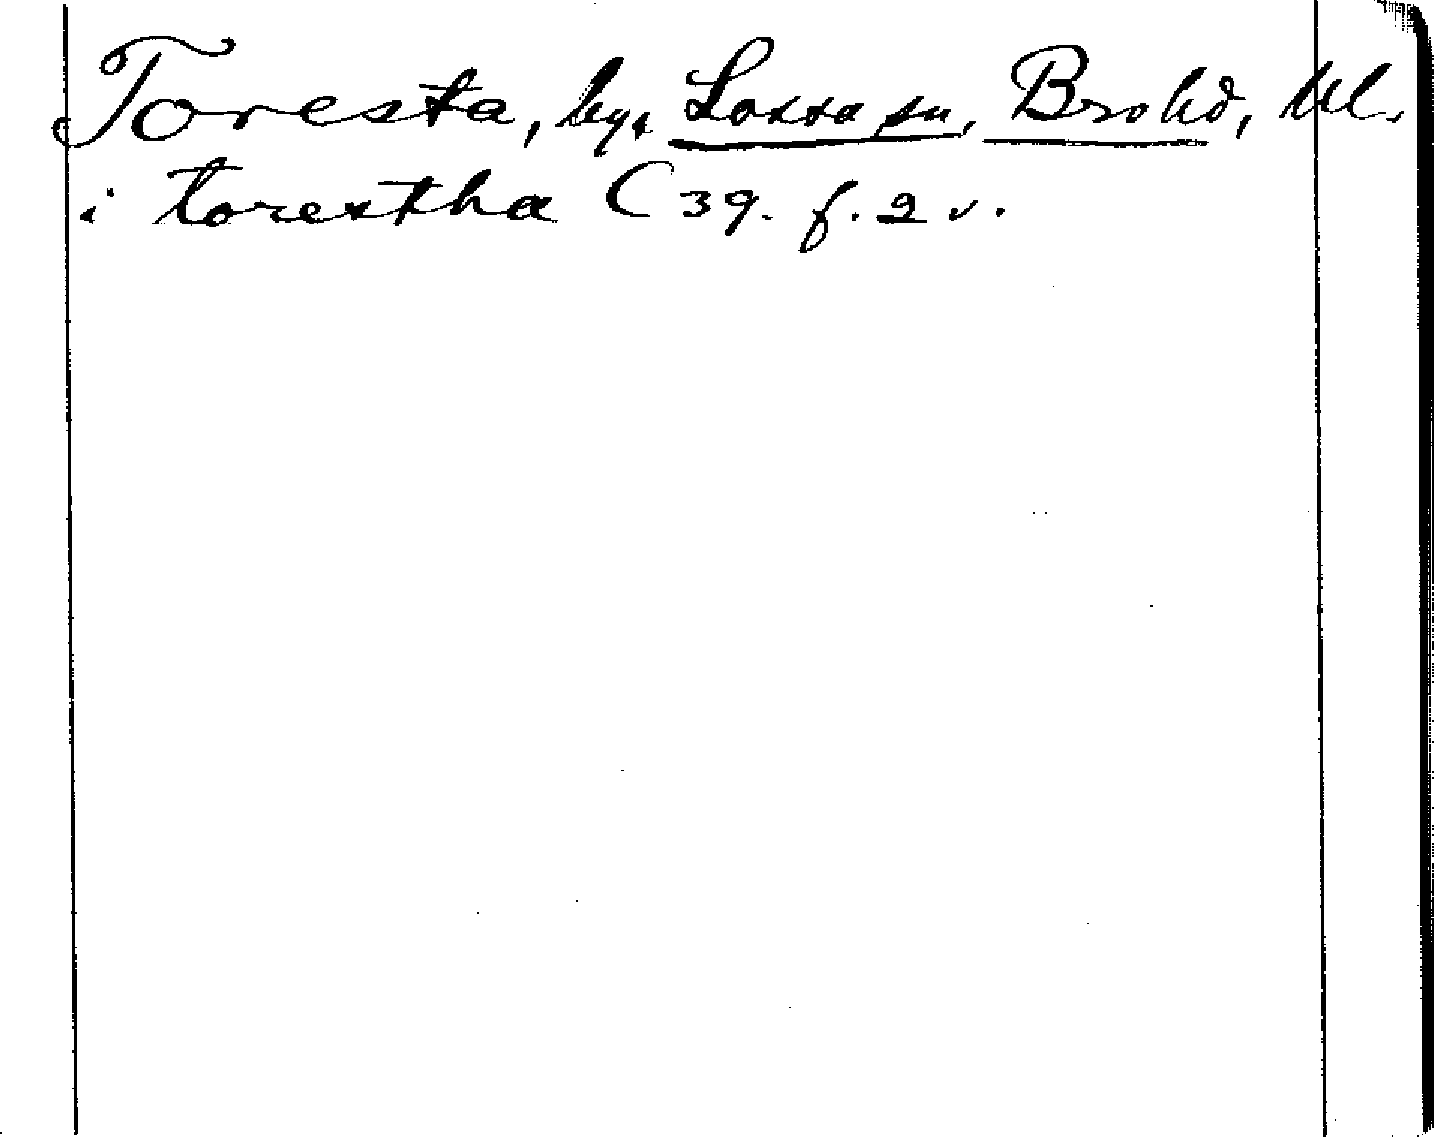 Toresta, by, Lossa sn, Brohd, Ul.
i torestha C 39. f. 2 v.